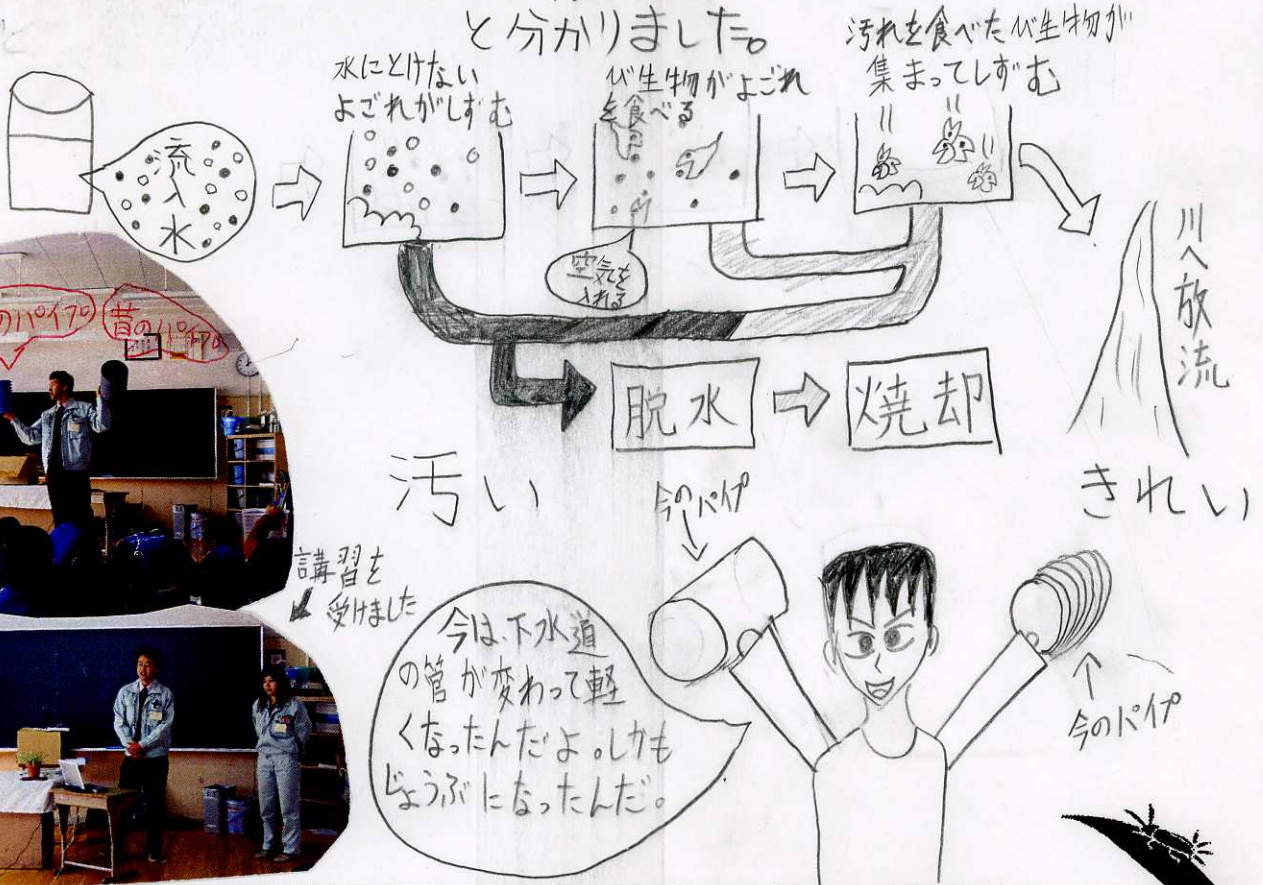 と分かりました。
水にとけない
よごれがしずむ
び生物がよごれ
を食べる
汚れを食べたび生物が
集まってしずむ
流
入
水
空気を
入れる
川へ放流
のパイプ
昔のパイプ
脱水
焼却
汚い
きれい
講習を
受けました
今のパイプ
今は、下水道
の管が変わって軽
くなったんだよ。しかも
じょうぶになったんだ。
今のパイプ